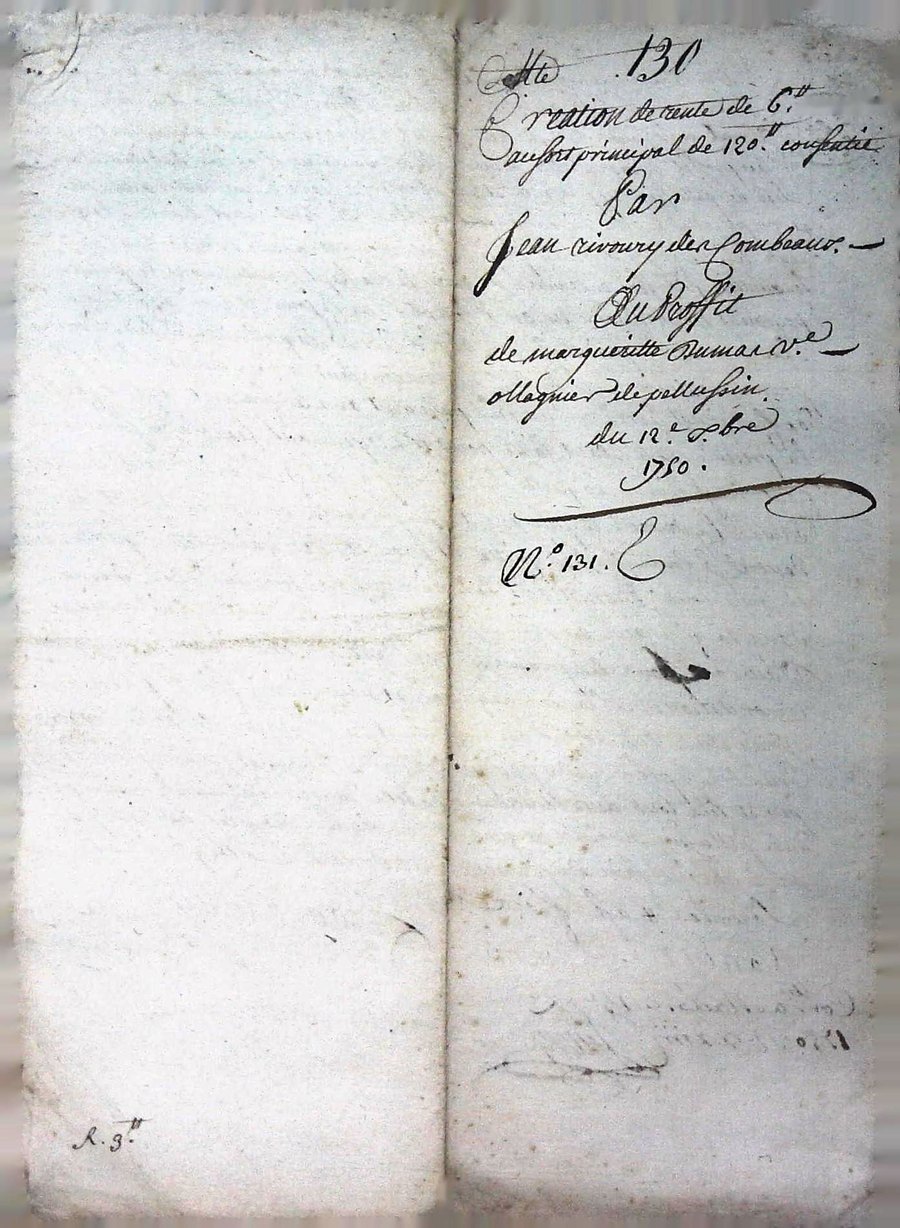 Cotte 130
Creation de rente de 6.tt
au sort principal de 120.tt consentie
Par
Jean rivoury des Combeaux.
Au Proffit
de margueritte Dumas v.e
ollagnier de pellussin.
du 12.e 8.bre
1750.
N.o 131.
R. 3.tt